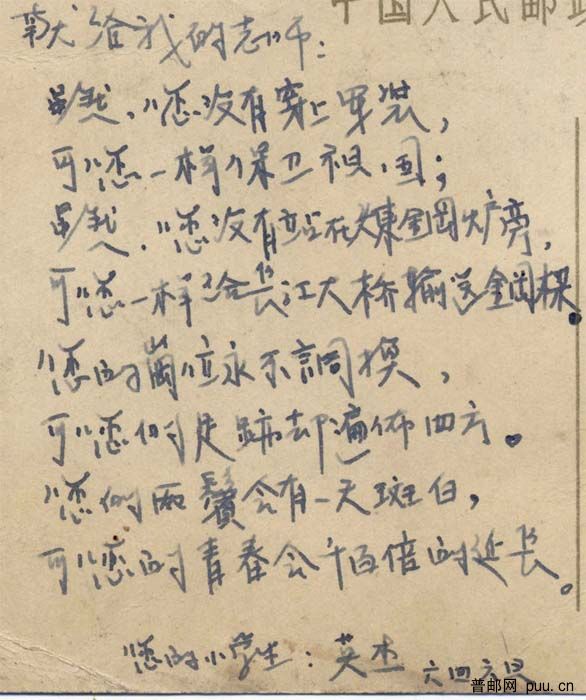 中国人民邮政
献给我的老师:
虽然,您没有穿上军装,
可您一样保卫祖国;
虽然,您没有站在煉鋼炉旁,
可您一样给长江大桥输送鋼
您的崗位永不調換,
可您的足跡却遍佈四方。
您的两鬓会有一天斑白,
可您的青春会千百倍的延长。
您的小学生:英杰 六四六
普邮网 puu.cn